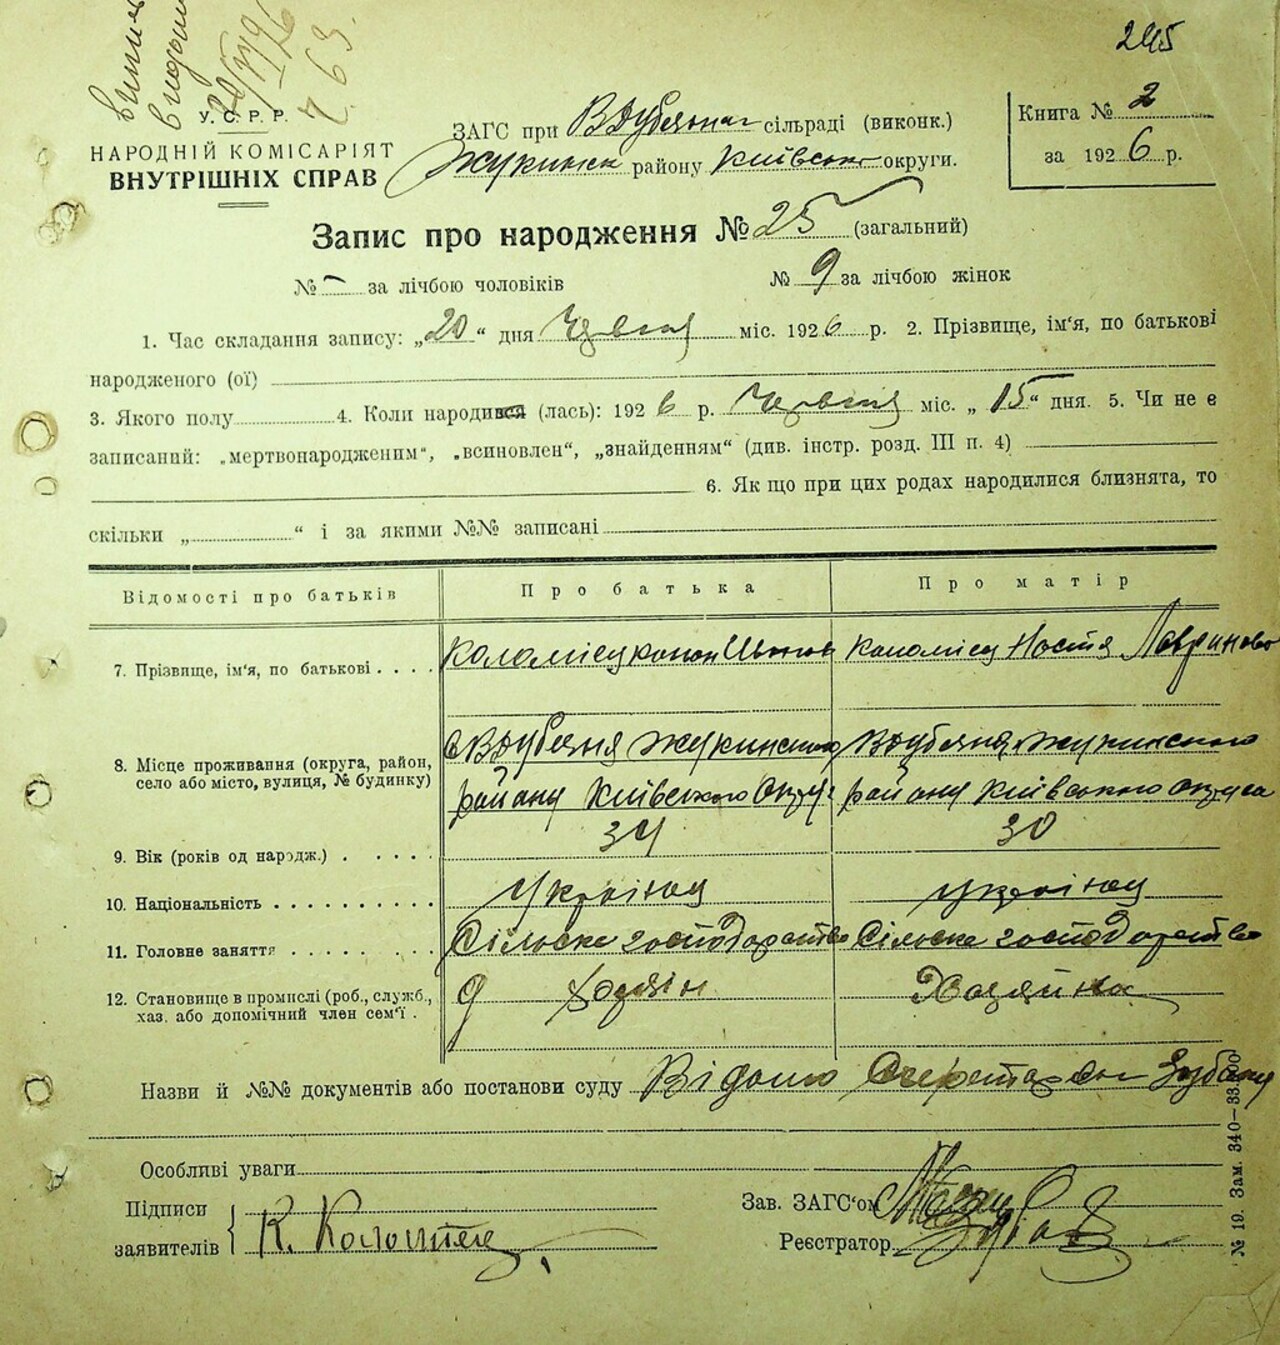 245
У. С. Р. Р.
НАРОДНІЙ КОМІСАРІЯТ
ВНУТРІШНІХ СПРАВ
ЗАГС при сільраді (виконк.)
Жукинськ району Київсько округи.
Книга № 2
за 1926 р.
Запис про народження № 25 (загальний)
№ – за лічбою чоловіків № 9 за лічбою жінок
1. Час складання запису: „20“ дня Червня міс. 1926 р. 2. Прізвище, ім'я, по батькові
народженого (ої)
3. Якого полу 4. Коли народився (лась): 1926 р. Червня міс. „15“ дня. 5. Чи не є
записаний: „мертвонародженим“, „всиновлен“, „знайденням“ (див. інстр. розд. III п. 4)
6. Як що при цих родах народилися близнята, то
скільки „ “ і за якими №№ записані
Відомості про батьків Про батька Про матір
7. Прізвище, ім'я, по батькові Коломієц Конон Коломієц Настя
8. Місце проживання (округа, район, В Дубечня Жукинского В Дубечня Жукинского
село або місто, вулиця, № будинку) району Київського Округ району Київського Округа
9. Вік (років од народж.) 34 30
10. Національність Україней Україней
11. Головне заняття Сільске господарство Сільске господарство
12. Становище в промислі (роб., служб., Хозяін Хозяйка
хаз. або допомічний член сем'ї
Назви й №№ документів або постанови суду Відомо
Особливі уваги
Підписи
заявителів К. Коломієц
Зав. ЗАГС'ом
Реєстратор
№ 19. Зам. 340—33.000